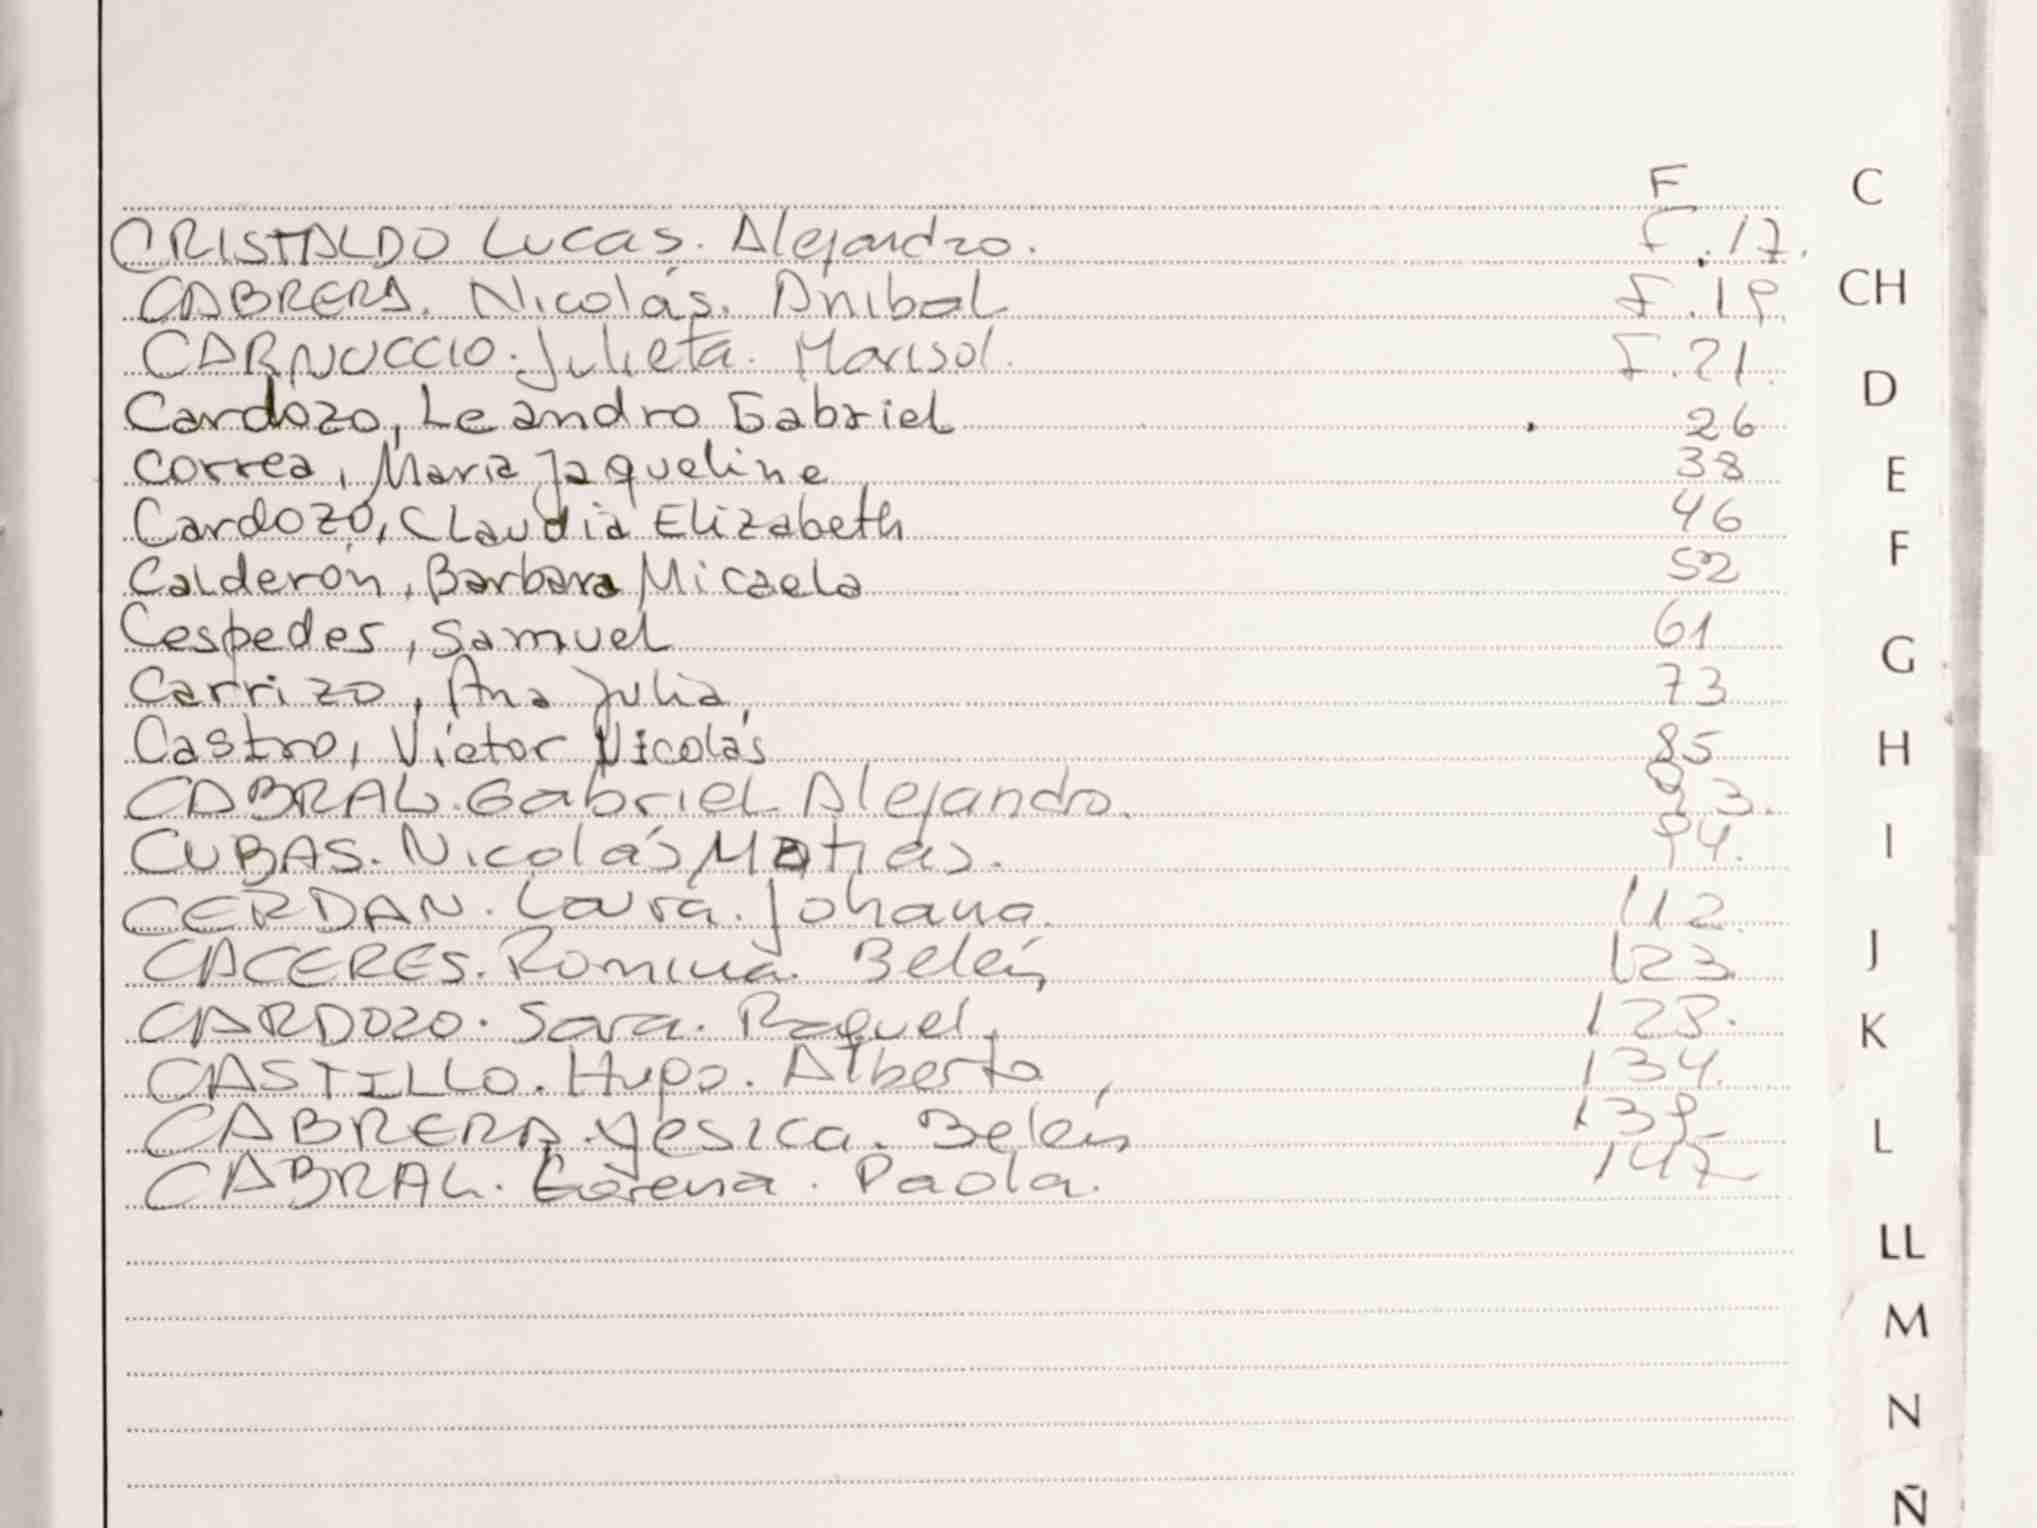 F
CRISTALDO Lucas. Alejandro. F.17.
CABRERA. Nicolás. Anibal F.19.
CARNUCCIO. Julieta. Marisol. F.21.
Cardozo, Leandro Gabriel 26
Correa, Maria Jaqueline 38
Cardozo, Claudia Elizabeth 46
Calderón, Barbara Micaela 52
Cespedes, Samuel 61
Carrizo, Ana Julia 73
Castro, Víctor Nicolás 85
CABRAL. Gabriel Alejandro. 93.
CUBAS. Nicolás Matías. 94.
CERDAN. Laura. Johana. 112.
CACERES. Romina. Belén 123.
CARDOZO. Sara. Raquel
CASTILLO. Hugo. Alberto 134.
CABRERA. Yesica. Belén 139
CABRAL. Lorena. Paola. 147
C
CH
D
E
F
G
H
I
J
K
L
LL
M
N
Ñ